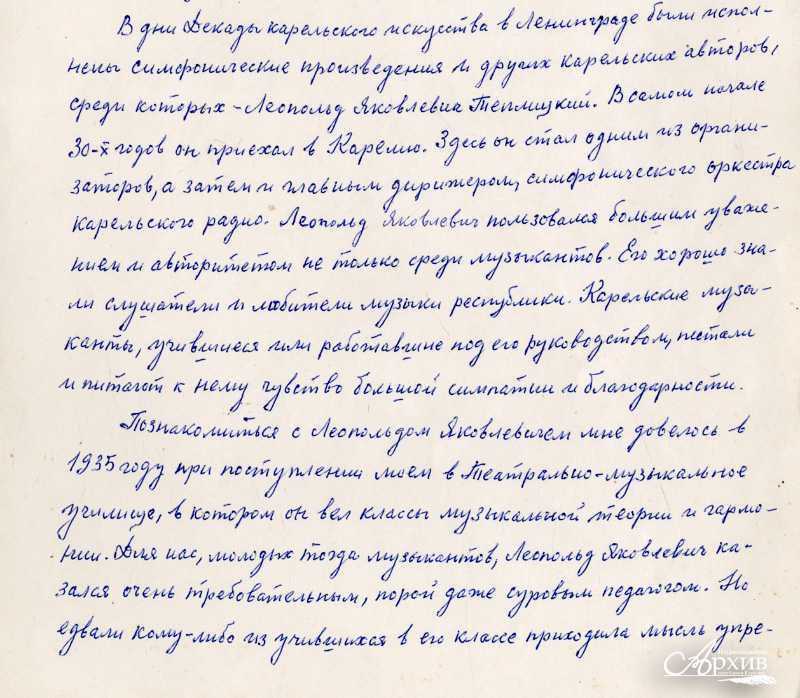 В дни Декады карельского искусства в Ленинграде были испол-
нены симфонические произведения и других карельских авторов,
среди которых – Леопольд Яковлевич Теплицкий. В самом начале
30-х годов он приехал в Карелию. Здесь он стал одним из органи-
заторов, а затем и главным дирижером, симфонического оркестра
Карельского радио. Леопольд Яковлевич пользовался большим уваже-
нием и авторитетом не только среди музыкантов. Его хорошо зна-
ли слушатели и любители музыки республики. Карельские музы-
канты, учившиеся или работавшие под его руководством, питали
и питают к нему чувство большой симпатии и благодарности.
Познакомиться с Леопольдом Яковлевичем мне довелось в
1935 году при поступлении моем в Театрально-музыкальное
училище, в котором он вел классы музыкальной теории и гармо-
нии. Для нас, молодых тогда музыкантов, Леопольд Яковлевич ка-
зался очень требовательным, порой даже суровым педагогом. Но
едвали кому-либо из учившихся в его классе приходила мысль упре-
Национальный
Архив
Республики Карелия